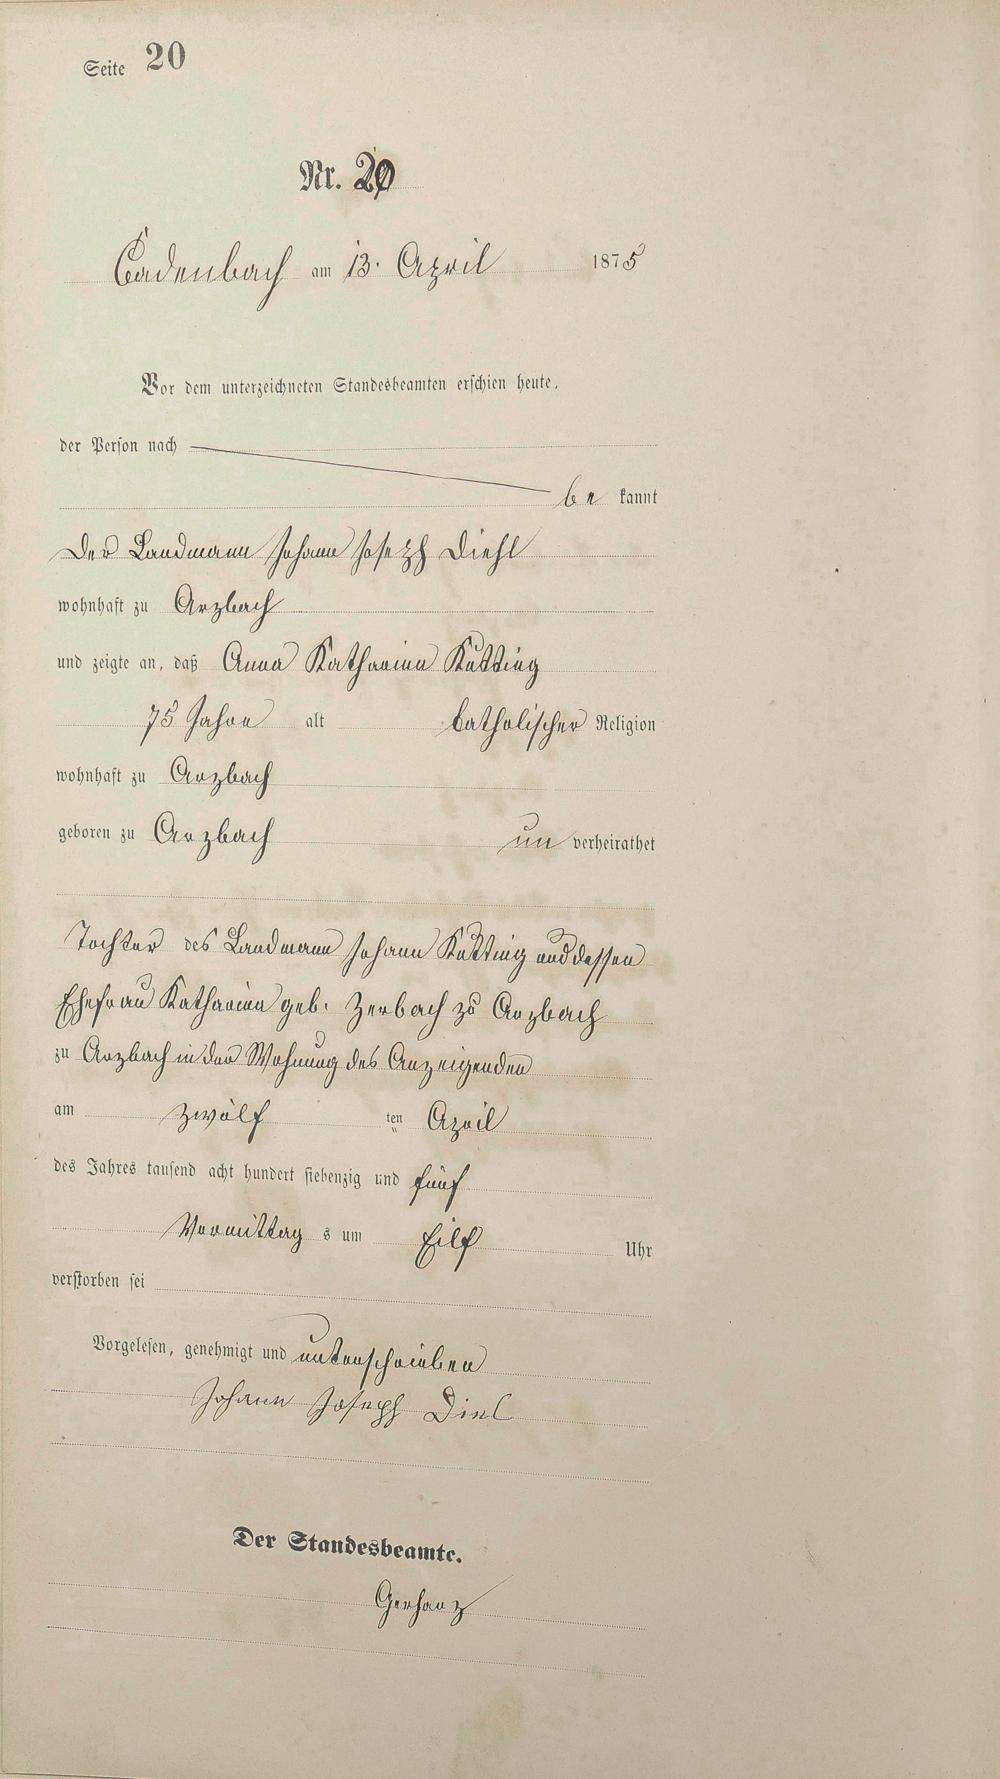 Seite 20
Nr. 20
Cadenbach am 13. April 1875
Vor dem unterzeichneten Standesbeamten erschien heute,
der Person nach
be kannt
Der Landmann Johann Joseph Diehl
wohnhaft zu Arzbach
und zeigte an, daß Anna Katharina Kütting
75 Jahre alt katholischer Religion
wohnhaft zu Arzbach
geboren zu Arzbach un verheirathet
Tochter des Landmann Johann Kütting und dessen
Ehefrau Katharina geb. Zerbach zu Arzbach
zu Arzbach in der Wohnung des Anzeigenden
am zwölf ten April
des Jahres tausend acht hundert siebenzig und fünf
Vormittag s um Eilf Uhr
verstorben sei
Vorgelesen, genehmigt und unterschrieben
Johann Joseph Diel
Der Standesbeamte.
Gerharz